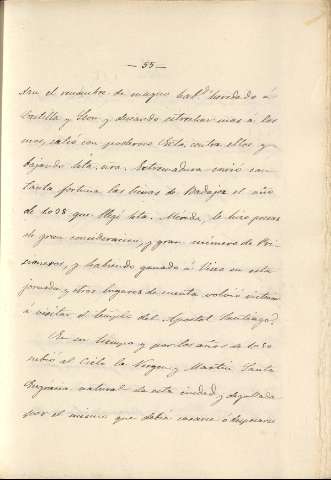 — 55 —
con el renombre de magno hab.ᵈᵒ heredado á
Castilla y Leon y deseando estrechar mas á los
mros, salió con poderoso Exto. contra ellos, y
dejando esta, una. Extremadura corrió con
tanta fortuna las tierras de Badajoz el año
de 1038 que llegó hta. Mérida, le hizo presas
de gran consideracion, y gran número de Pri-
sioneros, y habiendo ganado á Viseo en esta
jornada y otros lugares de cuenta volvió victorioso
á visitar el templo del Apostol Santiago.
En su tiempo y por los años de 1050
subió al Cielo la Virgen y Martir Santa
Engracia natural de esta ciudad, y degollada
por el mismo que debia casarse ó desposarse